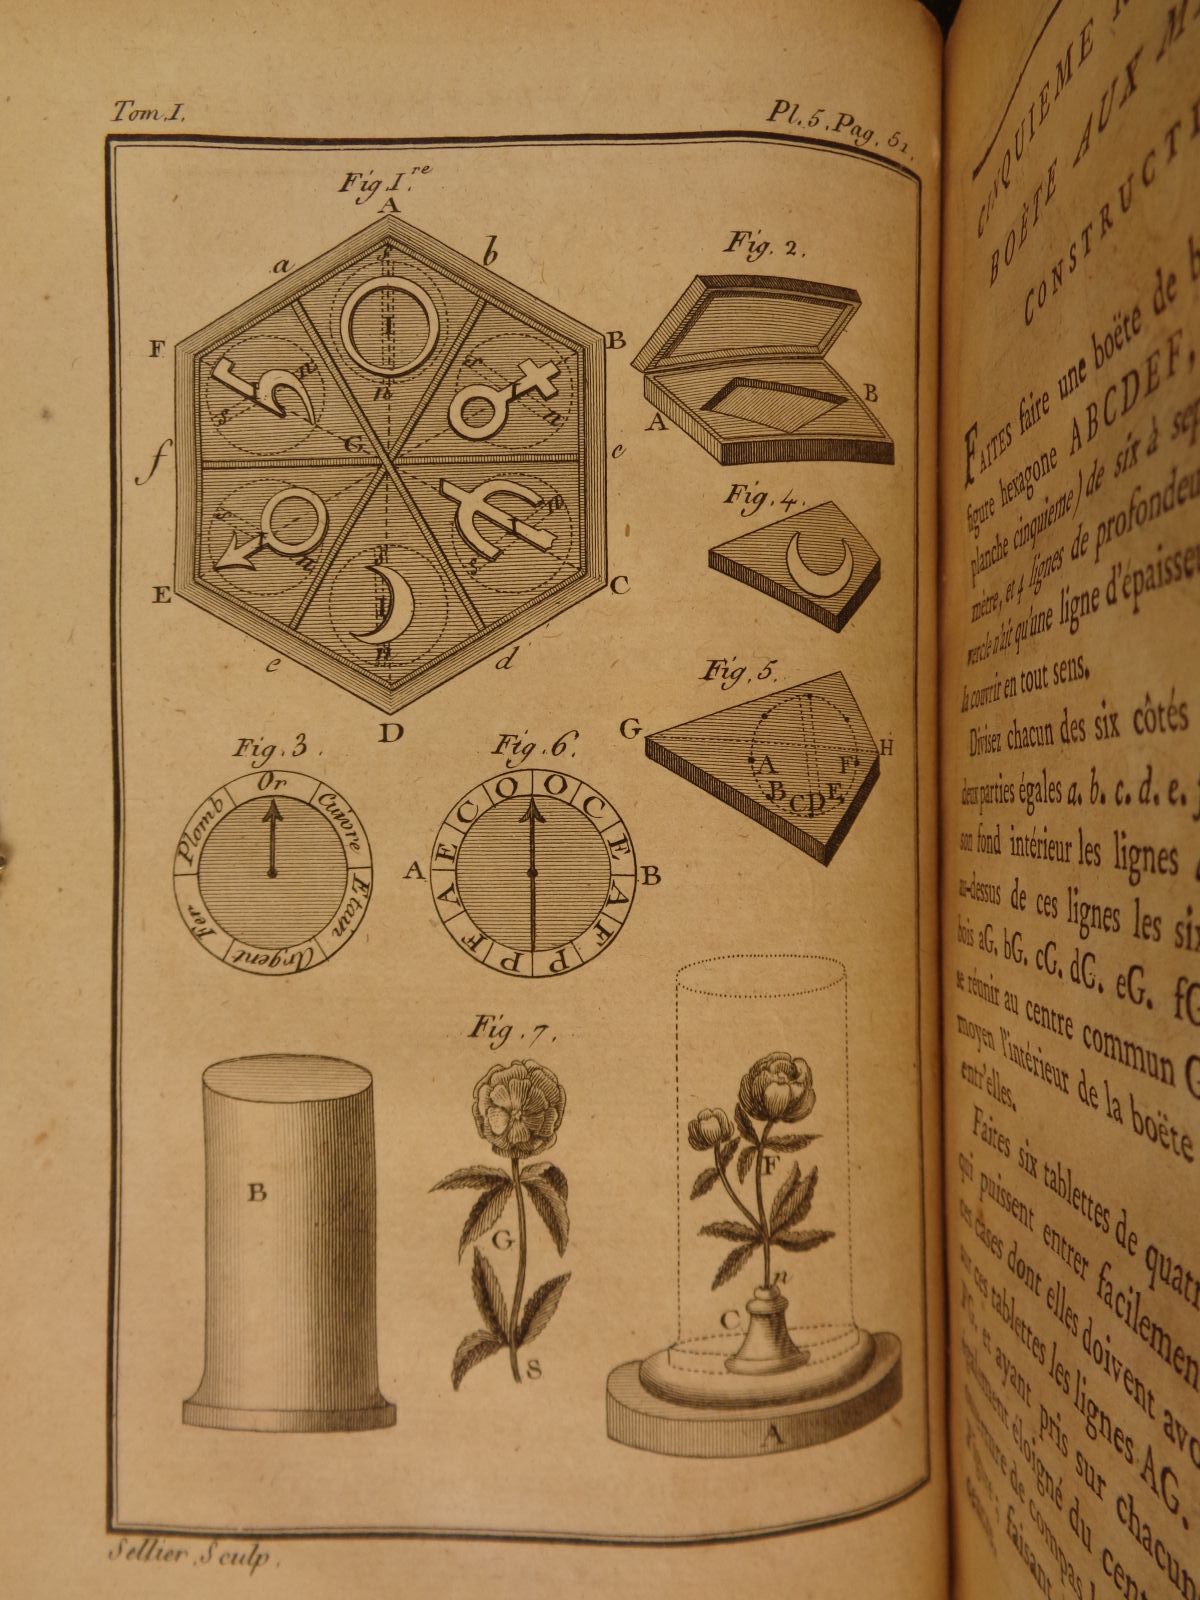 Tom. I.
Pl. 5. Pag. 51.
Fig. 1.re
A
a
b
F
B
f
G
c
E
C
e
d
D
Fig. 2.
A
B
Fig. 4.
Fig. 5.
G
H
A
B
C
D
E
F
Fig. 3.
Or
Cuivre
Etain
Argent
Fer
Plomb
Fig. 6.
A
B
O C E A F P P F A E C O
Fig. 7.
B
G
S
F
n
C
A
Sellier Sculp.
CINQUIEME
BOËTE AUX
CONSTRUCTI
FAITES faire une boëte de b
figure hexagone ABCDEF,
planche cinquieme) de six à sep
mètre, et 4 lignes de profondeu
qu'une ligne d'épaisse
la couvrir en tout sens.
Divisez chacun des six côtés
deux parties égales a. b. c. d. e.
son fond intérieur les lignes
au-dessus de ces lignes les six
bois aG. bG. cG. dG. eG. fG
se réunir au centre commun G
moyen l'intérieur de la boëte
entr'elles.
Faites six tablettes de quatr
qui puissent entrer facilemen
ces cases dont elles doivent avo
sur ces tablettes les lignes AG.
et ayant pris sur chacun
également éloigné du cent
de compas
faisant